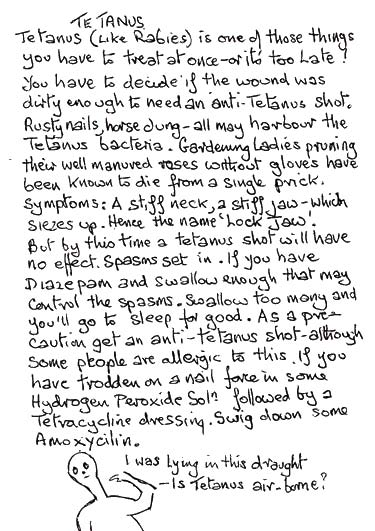 TETANUS
Tetanus (Like Rabies) is one of those things
you have to treat at once-or it's too Late!
You have to decide if the wound was
dirty enough to need an anti-Tetanus shot.
Rusty nails, horse dung-all may harbour the
Tetanus bacteria. Gardening Ladies pruning
their well manured roses without gloves have
been known to die from a single prick.
Symptoms: A stiff neck, a stiff jaw-which
siezes up. Hence the name 'Lock Jaw'.
But by this time a tetanus shot will have
no effect. Spasms set in. If you have
Diazepam and swallow enough that may
control the spasms. Swallow too many and
you'll go to sleep for good. As a pre-
caution get an anti-tetanus shot-although
some people are allergic to this. If you
have trodden on a nail force in some
Hydrogen Peroxide Solⁿ followed by a
Tetracycline dressing. Swig down some
Amoxycilin.
I was lying in this draught
-Is Tetanus air-borne?